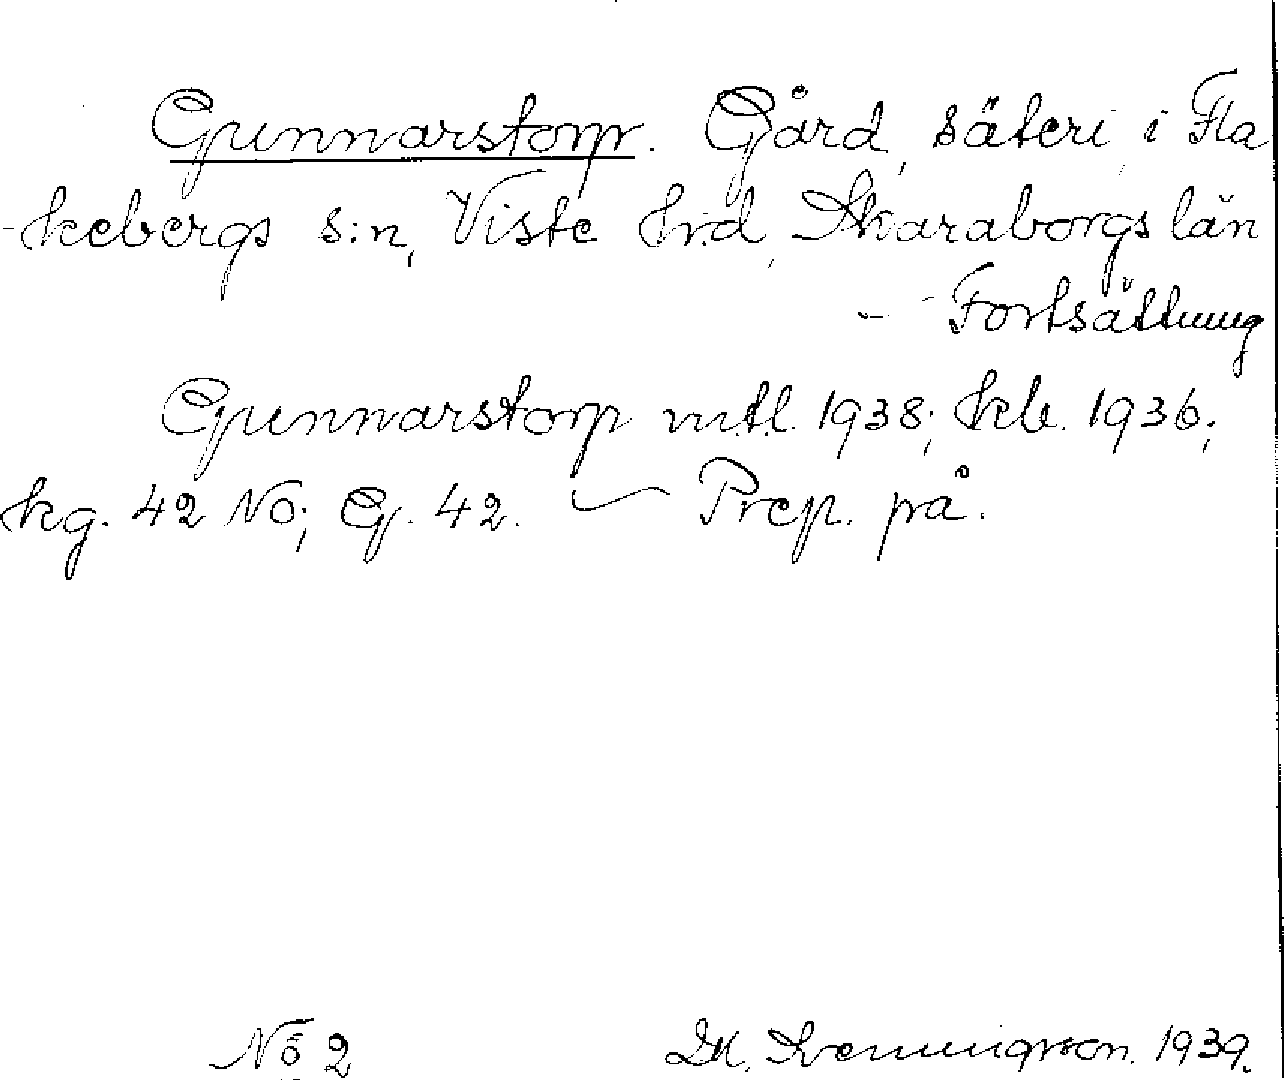 Gunnarstorp. Gård, säteri, i Fla
-kebergs s:n, Viste h:d, Skaraborgs län
- - Fortsättning
Gunnarstorp mtl. 1938; kb. 1936;
kg. 42 NO; G. 42. — Prep. på.
No 2 1939.